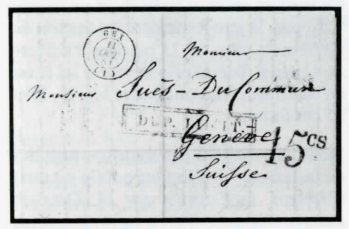 GEX
11
(1)
Monsieur
Monsieur Suès - Du Commun
DÉP. LIMIT.
Genève
15cs
Suisse